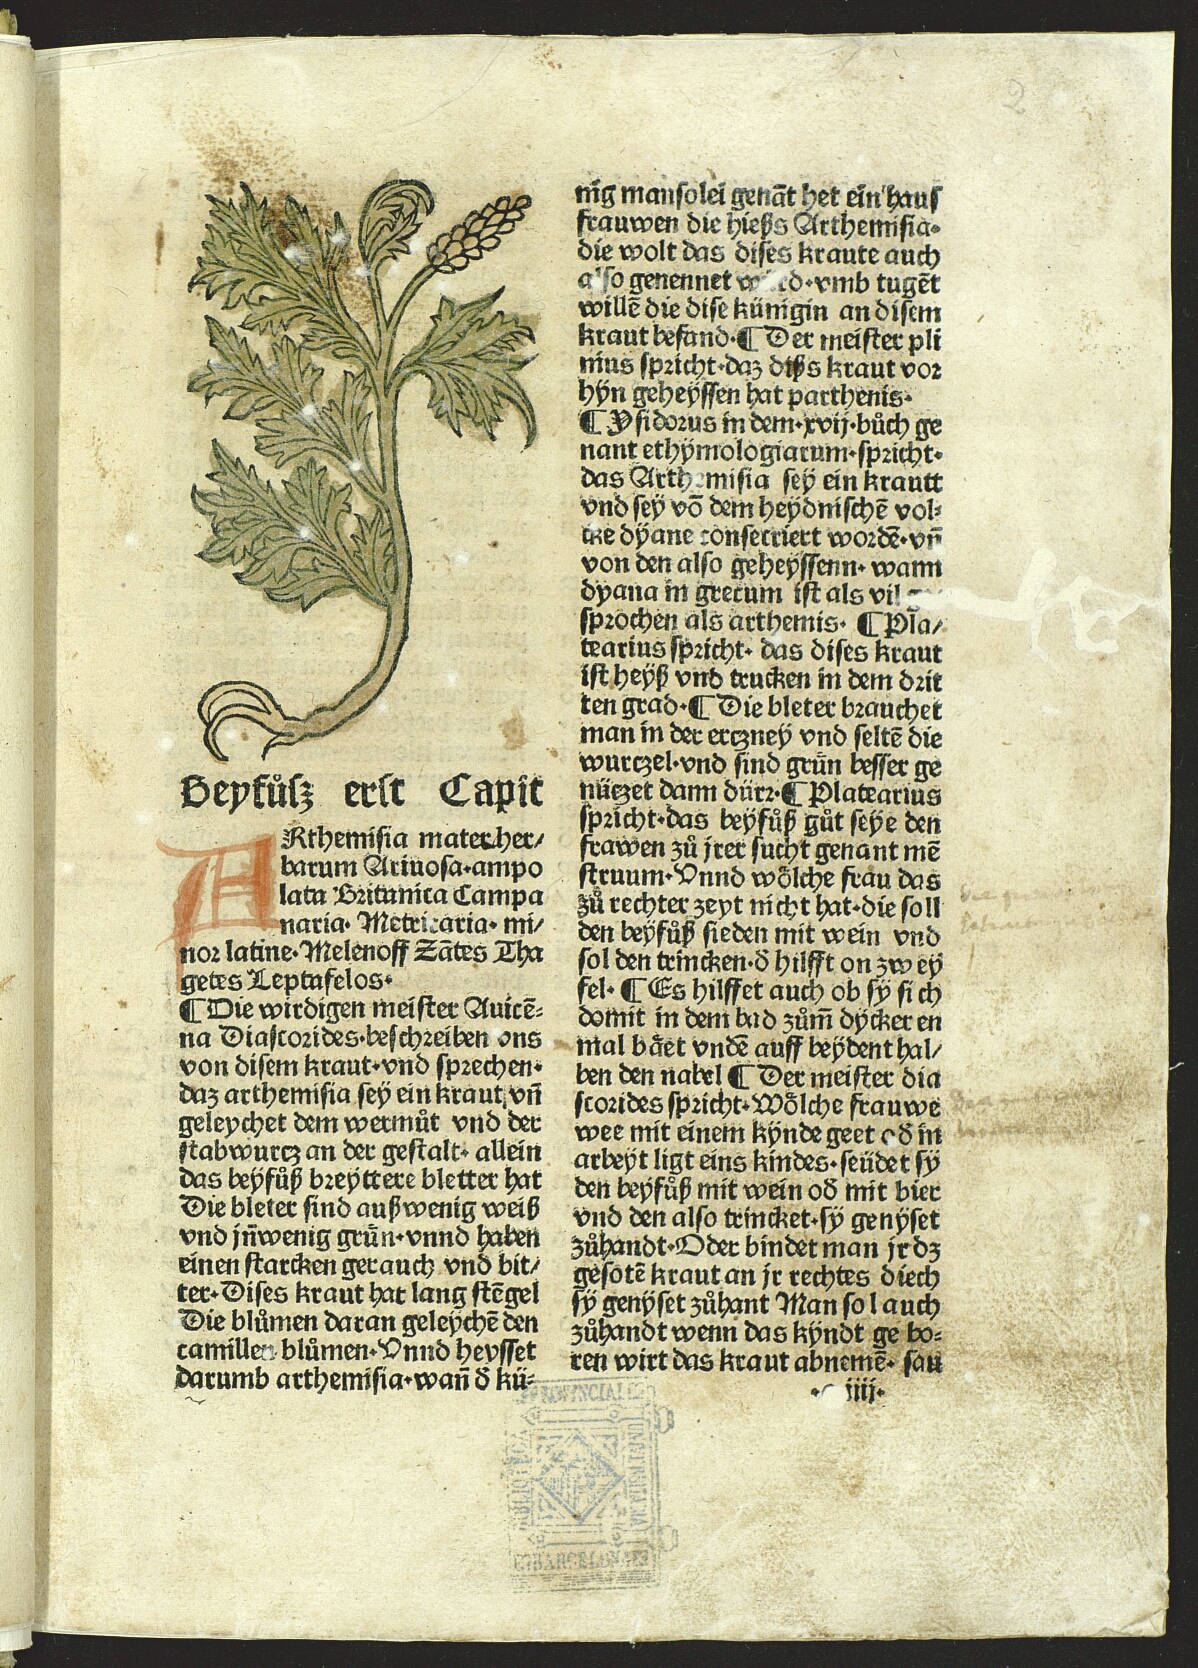 2
Beyfůſz erſt Capit
ARthemiſia mater her/
barum Ariuoſa·ampo
lata Britanica Campa
naria· Metricaria· mi/
nor latine·Melenoff Zātes Tha
getes Leptafelos·
¶Die wirdigen meiſter Auicē⸗
na Diaſcorides·beſchreiben vns
von diſem kraut·vnd ſprechen·
daz arthemiſia ſeÿ ein kraut vn̄
geleychet dem wermůt vnd der
ſtabwurcz an der geſtalt· allein
das beÿfůß breÿttere bletter hat
Die bleter ſind außwenig weiß
vnd jn̄wenig grün·vnnd haben
einen ſtarcken gerauch vnd bit/
ter·Diſes kraut hat lang ſtēgel
Die blůmen daran geleÿchē den
camillen blůmen·Vnnd heyſſet
darumb arthemiſia·wan̄ ð kü⸗
nig manſolei genāt het ein hauſ
frauwen die hieſs Arthemiſia·
die wolt das diſes kraute auch
alſo genennet würd·vmb tugēt
willē die diſe künigin an diſem
kraut befand·¶ Der meiſter pli
nius ſpricht·daz diſs kraut vor
hÿn geheÿſſen hat parthenis·
¶ Yſidorus in dem·xvij·bůch ge
nant ethÿmologiarum·ſpricht·
das Arthemiſia ſeÿ ein krautt
vnd ſeÿ vō dem heÿdniſchē vol⸗
cke dÿane conſecriert wordē·vn̄
von den alſo geheÿſſenn· wann
dÿana in grecum iſt als vil
ſprochen als arthemis· ¶ Pla/
tearius ſpricht· das diſes kraut
iſt heÿß vnd trucken in dem drit
ten grad·¶ Die bleter brauchet
man in der erczneÿ vnd ſeltē die
wurczel·vnd ſind grün beſſer ge
nüczet dann dürr·¶ Platearius
ſpricht·das beÿfůß gůt ſeÿe den
frawen zů jrer ſucht genant mē
ſtruum·Vnnd wölche frau das
zů rechter zeyt nicht hat·die ſoll
den beÿfůß ſieden mit wein vnd
ſol den trincken·ð hilfft on zweÿ
fel· ¶ Es hilffet auch ob ſÿ ſich
domit in dem bad zům̄ dÿcker en
mal bäet vndē auff beÿdent hal/
ben den nabel ¶ Der meiſter dia
ſcorides ſpricht·Wölche frauwe
wee mit einem kÿnde geet oð in
arbeÿt ligt eins kindes·ſeüdet ſÿ
den beÿfůß mit wein oð mit bier
vnd den alſo trincket·ſÿ genÿſet
zůhandt·Oder bindet man jr dz
geſotē kraut an jr rechtes diech
ſÿ genÿſet zůhant Man ſol auch
zůhandt wenn das kÿndt ge bo⸗
ren wirt das kraut abnemē· ſau
iiij·
PROVINCIAL
UNIVERSITARIA
BIBLIOTECA
BARCELONA